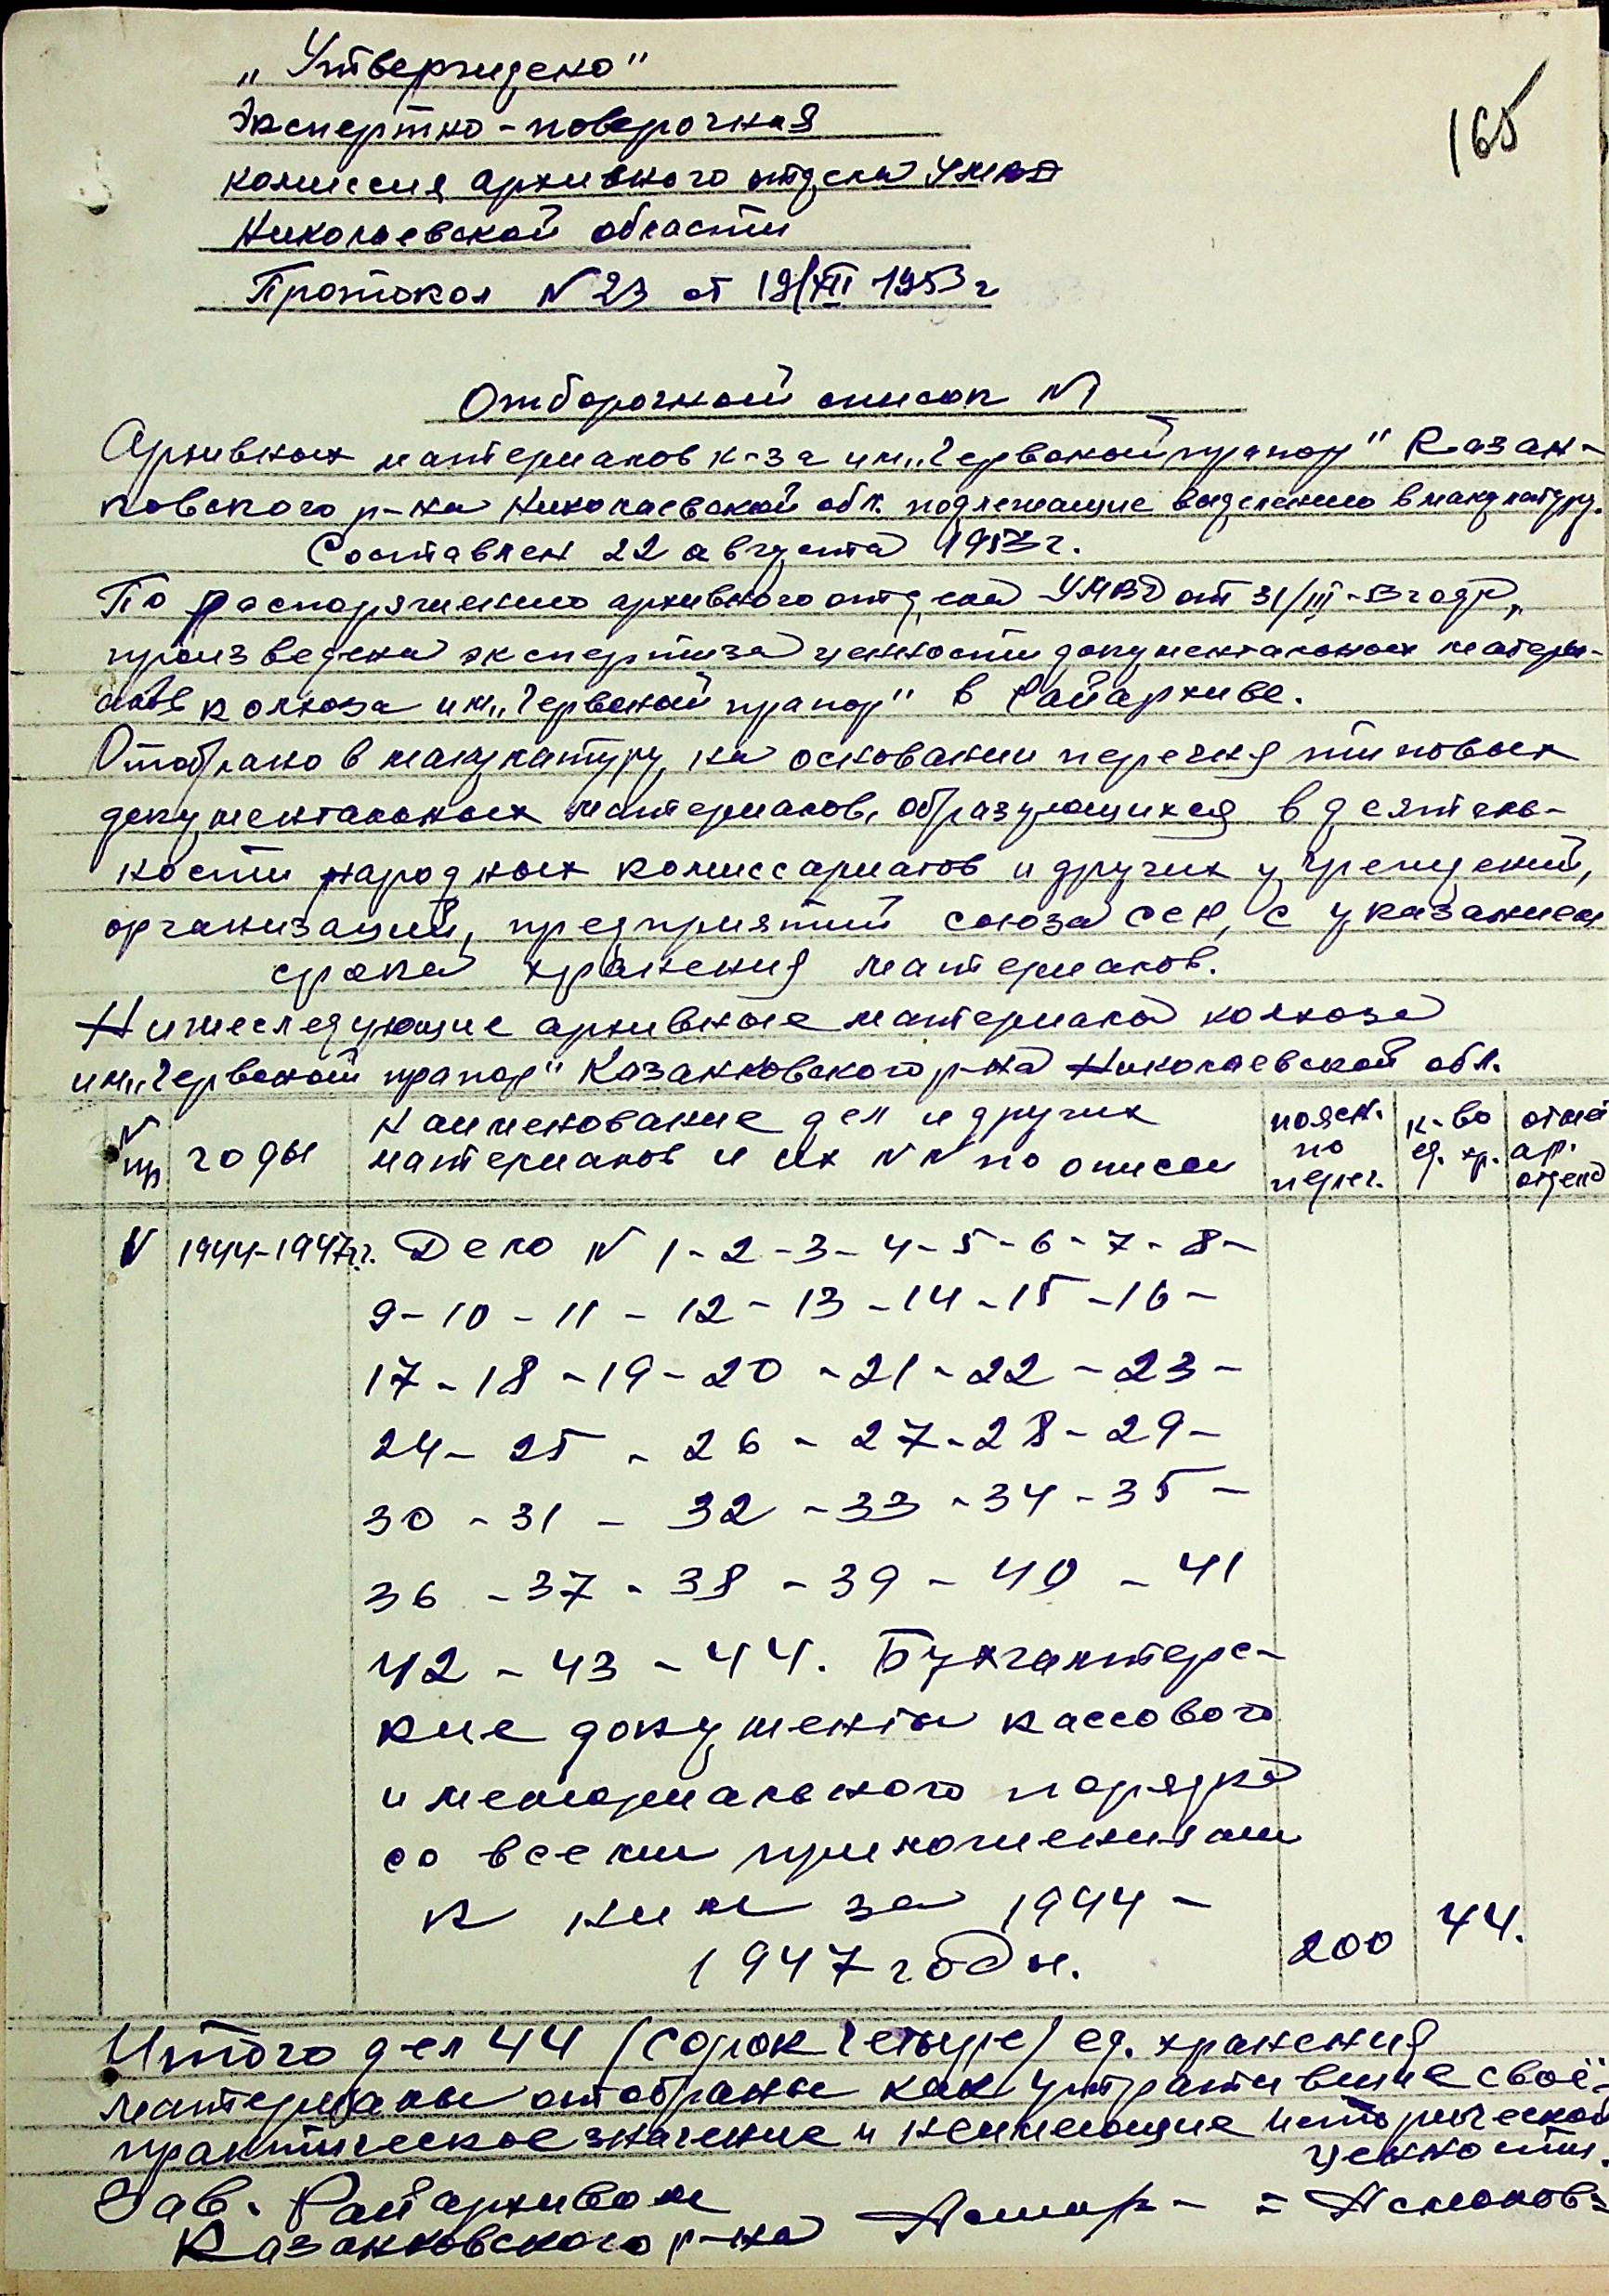 „Утверждено"
165
Экспертно-поверочная
комиссия архивного отдела УМВД
Николаевской области
Протокол №23 от 19/XII 1953 г
Отборочный список №1
Архивных материалов к-за им. „Червоный прапор" Казан-
ковского р-на Николаевской обл. подлежащие выделению в макулатуру.
Составлен 22 августа 1953 г.
По распоряжению архивного отдела УМВД от 31/III-53 года,
произведена экспертиза ценности документальных матери-
алов колхоза им. „Червоный прапор" в Райархиве.
Отобрано в макулатуру на основании перечня типовых
документальных материалов, образующихся в деятель-
ности народных комиссариатов и других учреждений,
организаций, предприятий союза ССР, с указанием
срока хранения материалов.
Нижеследующие архивные материалы колхоза
им. „Червоный прапор" Казанковского р-на Николаевской обл.
№ пр годы Наименование дел и других материалов и их №№ по описи поясн. по переч. к-во ед. хр. отме ар. отдела
1 1944-1947г.г. Дело № 1-2-3-4-5-6-7-8-
9-10-11-12-13-14-15-16-
17-18-19-20-21-22-23-
24-25-26-27-28-29-
30-31-32-33-34-35-
36-37-38-39-40-41
42-43-44. Бухгалтерс-
кие документы кассового
и мемориального порядка
со всеми приложениями
к ним за 1944-
1947 годы. 200 44.
Итого дел 44 (сорок четыре) ед. хранения
материалы отобраны как утратившие своё
практическое значение и неимеющие исторической
ценности.
Зав. Райархивом
Казанковского р-на